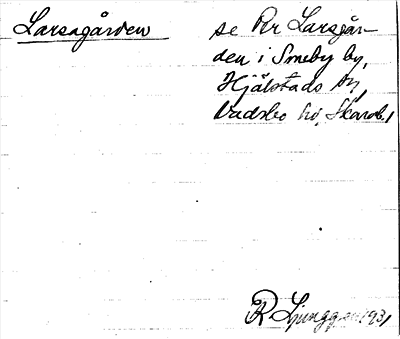 Larsagården se Per Larsgår-
den i Smeby by,
Hjälstads sn,
Vadsbo hd, Skarab.l
R Ljunggren 1931